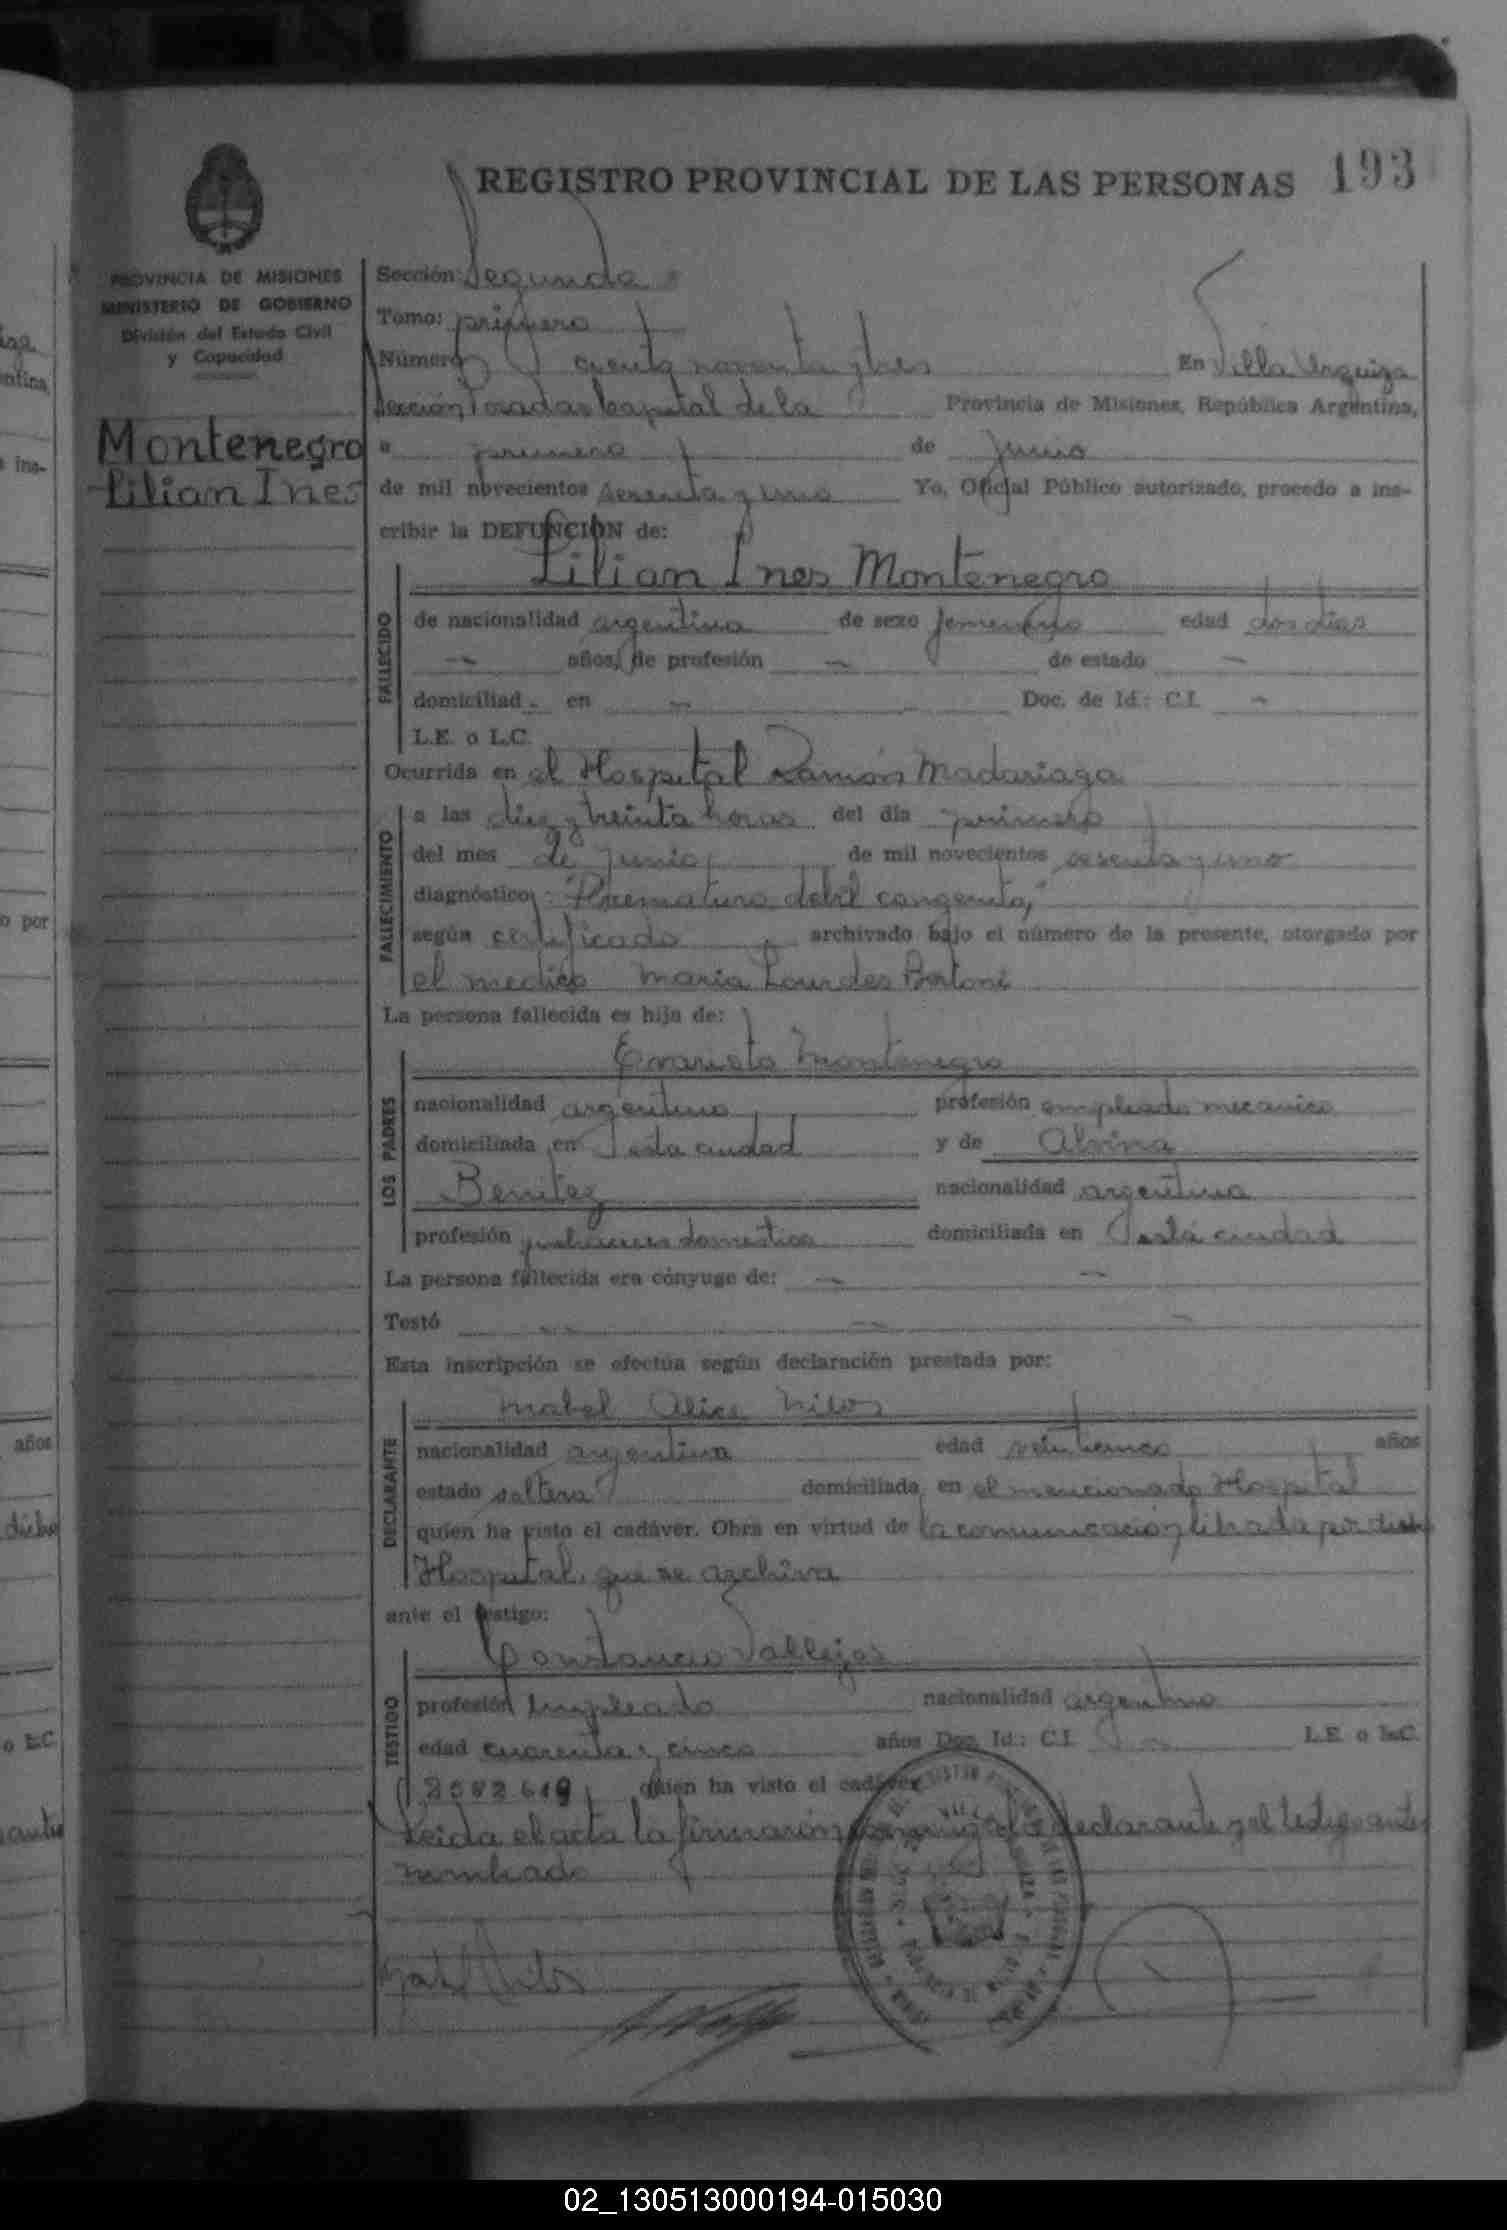 REGISTRO PROVINCIAL DE LAS PERSONAS 193
PROVINCIA DE MISIONES
MINISTERIO DE GOBIERNO
División del Estado Civil
y Capacidad
Montenegro
Lilian Ines
Sección: Segunda
Tomo: primero
Número ciento noventa y tres En Villa Urquiza
Sección Posadas Capital de la Provincia de Misiones, República Argentina,
a primero de Junio
de mil novecientos sesenta y uno Yo, Oficial Público autorizado, procedo a ins-
cribir la DEFUNCIÓN de:
Lilian Ines Montenegro
FALLECIDO
de nacionalidad argentina de sexo femenino edad dos dias
— años, de profesión — de estado —
domiciliad. en — Doc. de Id.: C.I. —
L.E. o L.C.
Ocurrida en el Hospital Ramón Madariaga
FALLECIMIENTO
a las diez y treinta horas del día primero
del mes de Junio de mil novecientos sesenta y uno
diagnóstico: "Prematuro debil congenito,"
según certificado archivado bajo el número de la presente, otorgado por
el medico Maria Lourdes Bertoni
La persona fallecida es hija de:
LOS PADRES
Evaristo Montenegro
nacionalidad argentino profesión empleado mecanico
domiciliada en esta ciudad y de Alvina
Benitez nacionalidad argentina
profesión quehaceres domesticos domiciliada en esta ciudad
La persona fallecida era cónyuge de: — —
Testó — — —
Esta inscripción se efectúa según declaración prestada por:
DECLARANTE
Mabel Alice
nacionalidad argentina edad veinticinco años
estado soltera domiciliada en el mencionado Hospital
quien ha visto el cadáver. Obra en virtud de la comunicación librada por dicho
Hospital, que se archiva
ante el testigo:
TESTIGO
Constancio Vallejos
profesión Empleado nacionalidad argentino
edad cuarenta y cinco años Doc. Id.: C.I. — L.E. o L.C.
quien ha visto el cadáver
Leida el acta la firmaron conmigo la declarante y el testigo antes
nombrado
02_130513000194-015030